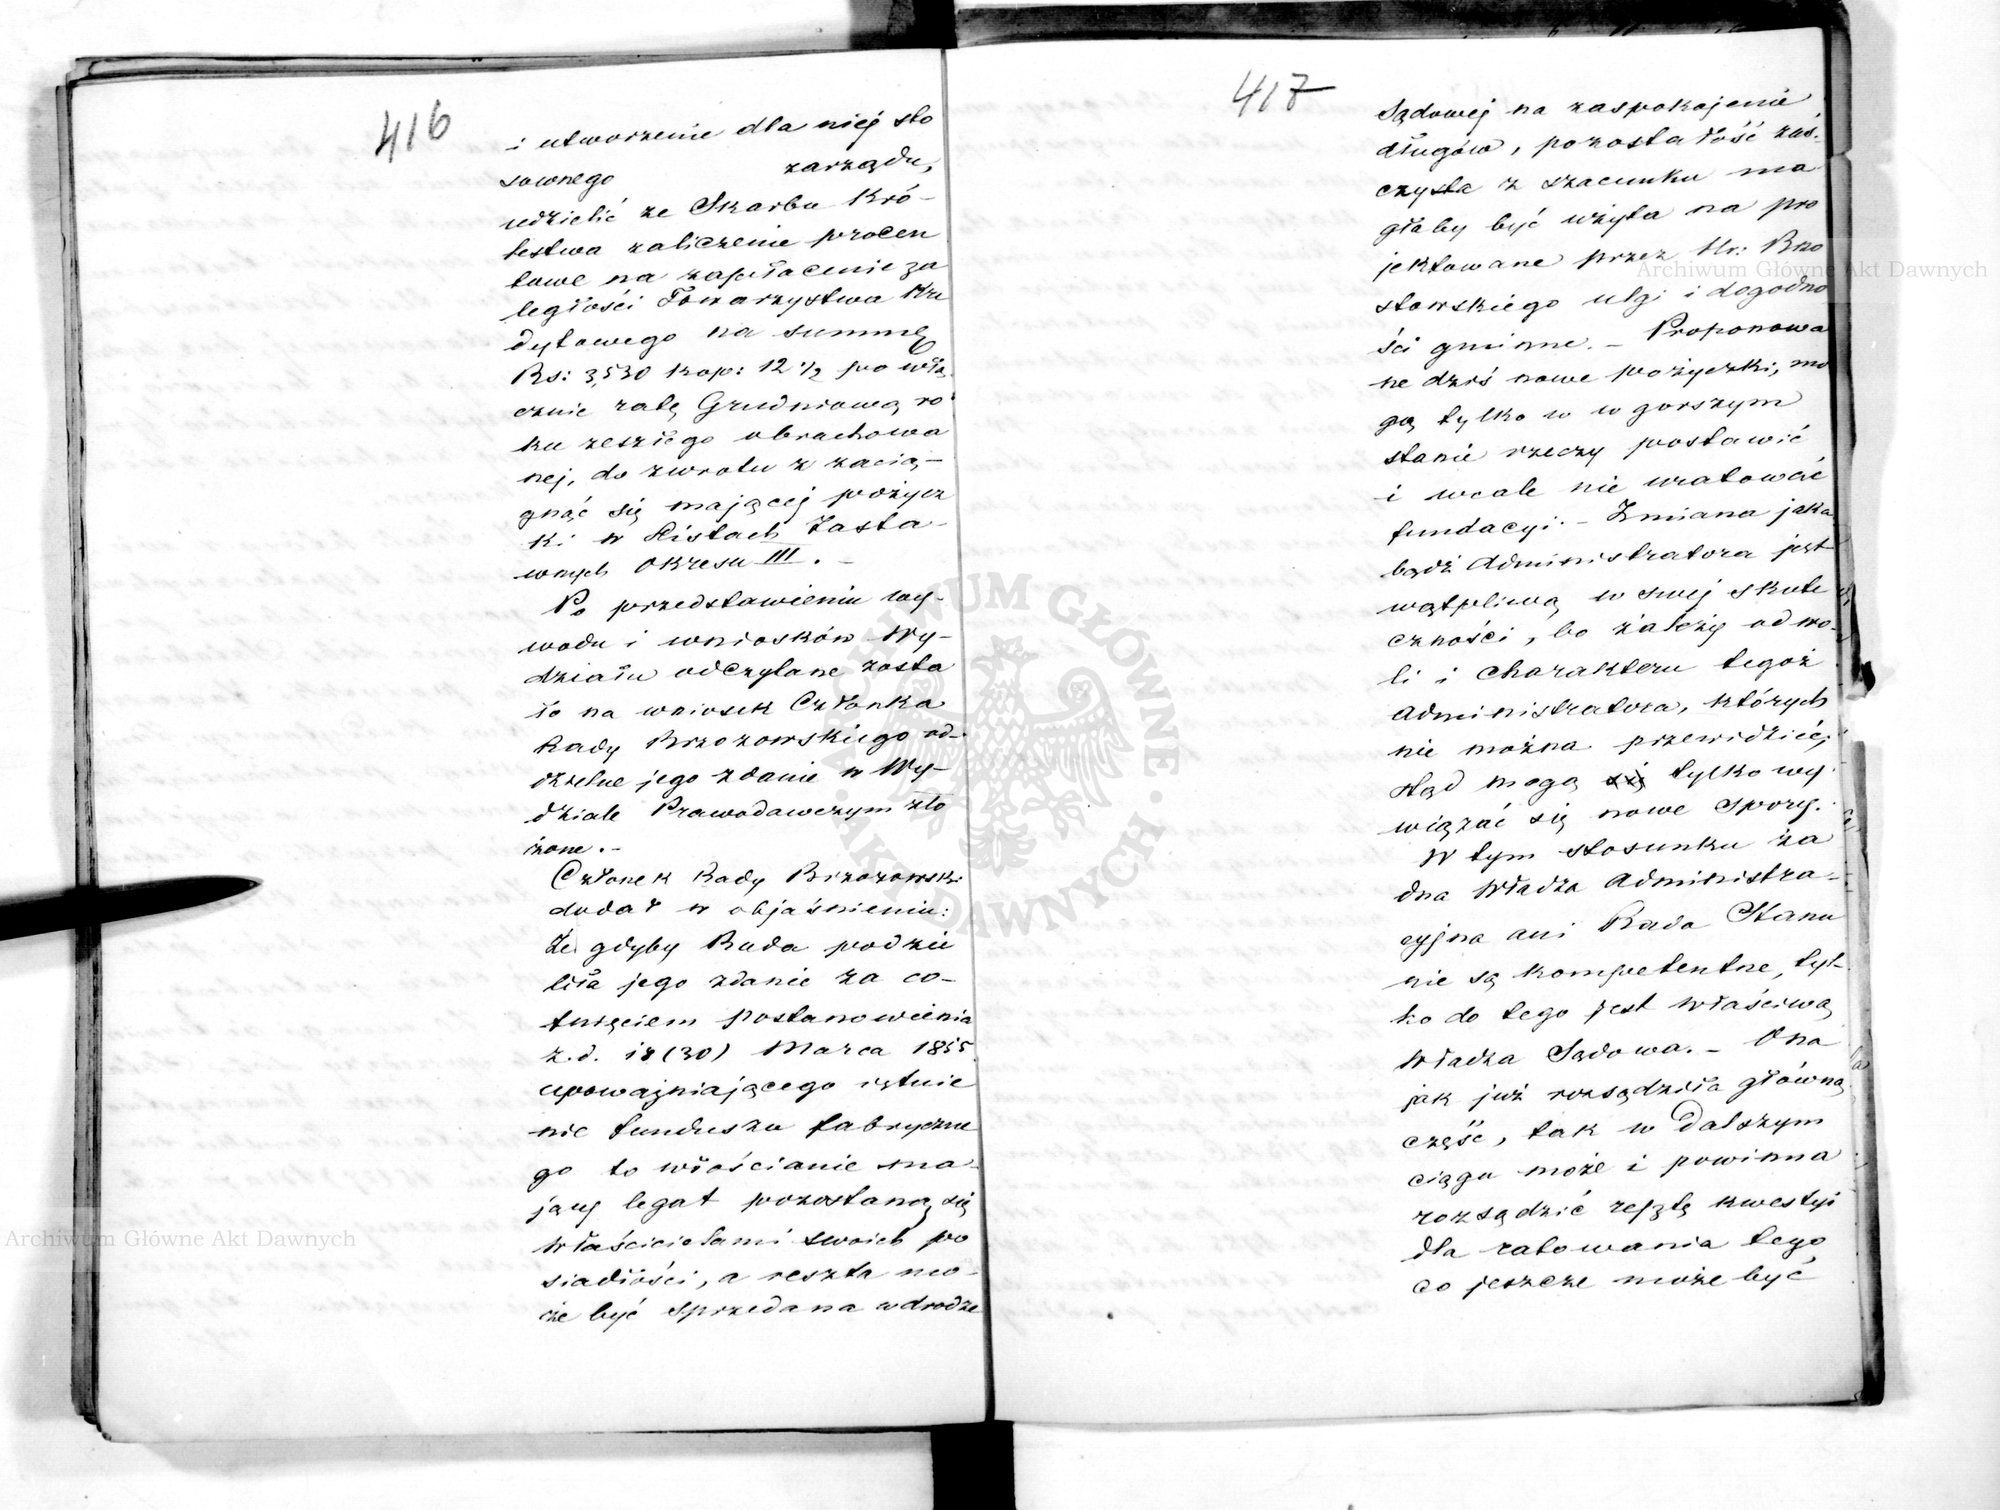 416
i utworzenie dla niej sto
sownego zarządu,
udzielić ze Skarbu Kró-
lestwa zaliczenie procen
towe na zapłacenie za
ległości Towarzystwa Kre
dytowego na summę
Rs: 3,530 kop: 12 ½ po włą
cznie ratę Grudniową ro
ku zeszłego obrachowa
nej, do zwrotu z zacią-
gnąć się mającej pożycz
ki w Listach Zasta-
wnych Okresu III. -
Po przedstawieniu wy-
wodu i wniosków Wy-
działu odczytane zosta
ło na wniosek Członka
Rady Brzozowskiego od-
dzielne jego zdanie w Wy-
dziale Prawodawczym zło
żone. -
Członek Rady Brzozowski
dodał w objaśnieniu:
Że gdyby Rada podzie
liła jego zdanie za co-
fnięciem postanowienia
z. d. 18 (30) Marca 1855
upoważniającego istnie
nie funduszu fabryczne
go to włościanie ma-
jący legat pozostaną się
właścicielami swoich po
siadłości, a reszta mo-
że być sprzedana w drodze
417
Sądowej na zaspokojenie
długów, pozostałość zaś
czysta z szacunku mo
głaby być użyta na pro
jektowane przez Hr: Brzo
stowskiego ulgi i dogodno
ści gminne. - Proponowa
ne dziś nowe pożyczki, mo
gą tylko w w gorszym
stanie rzeczy postawić
i wcale nie uratować
fundacyi. - Zmiana jaka
bądź Administratora jest
wątpliwą w swej skute
czności, bo zależy od wo-
li i charakteru tegoż
Administratora, których
nie można przewidzieć;
stąd mogą się tylko wy-
wiązać się nowe spory.
W tym stosunku ża
dna Władza Administra-
cyjna ani Rada Stanu
nie są kompetentne, tyl-
ko do tego jest właściwą
Władza Sądowa. - Ona
jak już rozsądziła główną
część, tak w dalszym
ciągu może i powinna
rozsądzić resztę kwestyi
dla ratowania tego
co jeszcze może być
Archiwum Główne Akt Dawnych
Archiwum Główne Akt Dawnych
ARCHIWUM GŁÓWNE AKT DAWNYCH